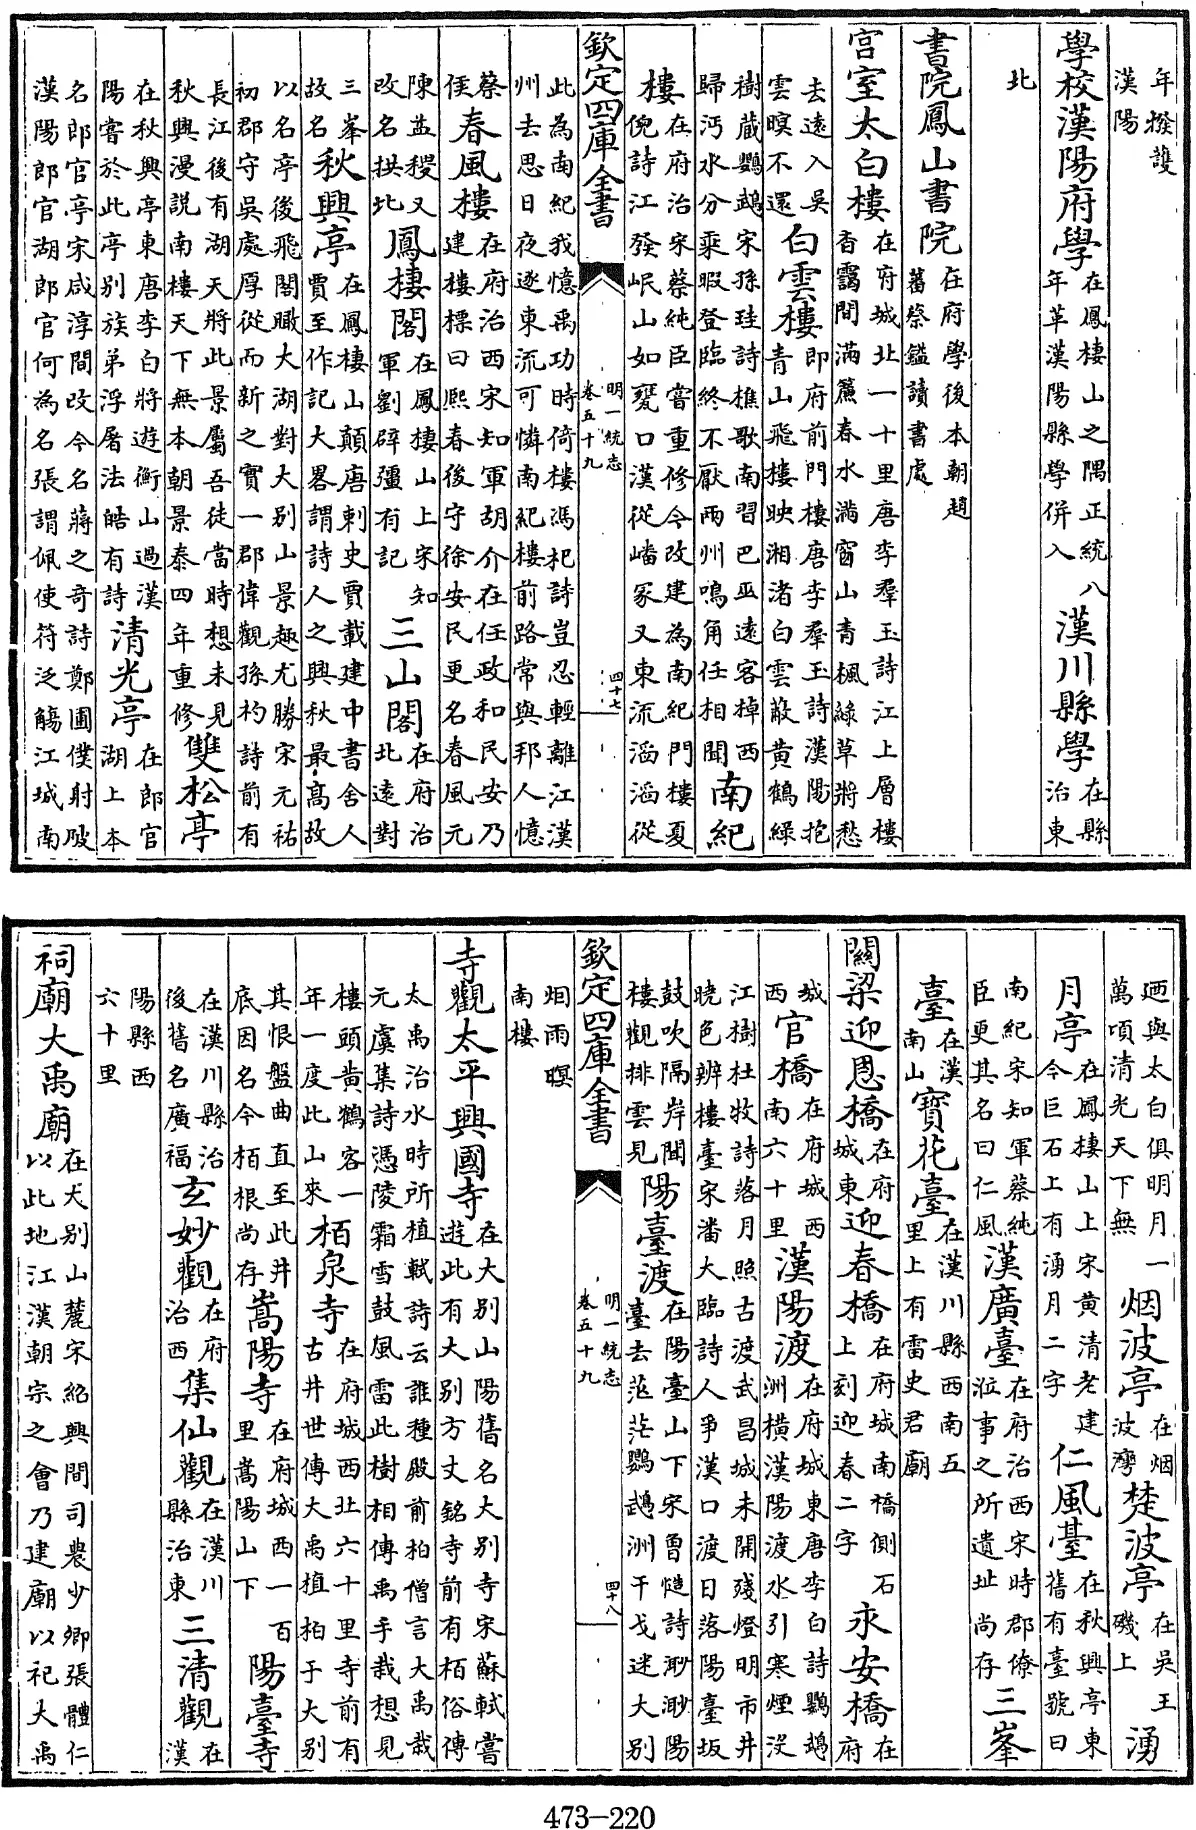 年撥䕶漢陽
學校漢陽府學在鳳棲山之隅正統八年革漢陽縣學併入漢川縣學在縣治東
北
書院鳳山書院在府學後本朝趙舊蔡鎰讀書處
宫室太白樓在府城北一十里唐李羣玉詩江上層樓香靄間滿簾春水滿窗山青楓綠草將愁
去遠入吳雲暝不還白雲樓即府前門樓唐李羣玉詩漢陽抱青山飛樓映湘渚白雲蔽黄鶴綠
樹藏鸚鵡宋孫珪詩樵歌南習巴巫遠客棹西歸沔水分乘暇登臨終不厭兩州鳴角任相聞南紀
樓在府治宋蔡純臣嘗重修今改建為南紀門樓夏倪詩江發岷山如甕口漢從嶓冢又東流滔滔從
欽定四庫全書 明一統志 卷五十九 四十七
此為南紀我憶禹功時倚樓馮杞詩豈忍輕離江漢州去思日夜逐東流可憐南紀樓前路常與邦人憶
蔡侯春風樓在府治西宋知軍胡介在任政和民安乃建樓標曰熈春後守徐安民更名春風元
陳盐稷又改名拱北鳳棲閣在鳳棲山上宋知軍劉辟彊有記三山閣在府治北遠對
三峯故名秋興亭在鳳棲山顛唐刺史賈載建中書舍人賈至作記大畧謂詩人之興秋最高故
以名亭後飛閣瞰大湖對大别山景趣尤勝宋元祐初郡守吳處厚從而新之實一郡偉觀孫杓詩前有
長江後有湖天將此景屬吾徒當時想未見秋興漫説南樓天下無本朝景泰四年重修雙松亭
在秋興亭東唐李白將遊衡山過漢陽嘗於此亭别族弟浮屠法皓有詩清光亭在郎官湖上本
名郎官亭宋咸淳間改今名蔣之奇詩鄭圃僕射陂漢陽郎官湖郎官何為名張謂佩使符泛觴江城南
廼與太白俱明月一萬頃清光天下無烟波亭在烟波灣楚波亭在吳王磯上湧
月亭在鳳棲山上宋黄清老建今巨石上有湧月二字仁風臺在秋興亭東舊有臺號曰
南紀宋知軍蔡純臣更其名曰仁風漢廣臺在府治西宋時郡僚涖事之所遺址尚存三峯
臺在漢南山寶花臺在漢川縣西南五里上有雷史君廟
關梁迎恩橋在府城東迎春橋在府城南橋側石上刻迎春二字永安橋在府
城西官橋在府城西南六十里漢陽渡在府城東唐李白詩鸚鵡洲横漢陽渡水引寒煙沒
江樹杜牧詩落月照古渡武昌城未開殘燈明市井曉色辨樓臺宋潘大臨詩人爭漢口渡日落陽臺坂
鼓吹隔岸聞樓觀排雲見陽臺渡在陽臺山下宋曾慥詩渺渺陽臺去茫茫鸚鵡洲干戈迷大别
欽定四庫全書 明一統志 卷五十九 四十八
烟雨暝南樓
寺觀太平興國寺在大别山陽舊名大别寺宋蘇軾嘗遊此有大别方丈銘寺前有栢俗傳
太禹治水時所植軾詩云誰種殿前柏僧言大禹栽元虞集詩憑陵霜雪鼓風雷此樹相傳禹手栽想見
樓頭黄鶴客一年一度此山來栢泉寺在府城西北六十里寺前有古井世傳大禹植柏于大别
其恨盤曲直至此井底因名今栢根尚存嵩陽寺在府城西一百里嵩陽山下陽臺寺
在漢川縣治後舊名廣福玄妙觀在府治西集仙觀在漢川縣治東三清觀在漢
陽縣西六十里
祠廟大禹廟在大别山麓宋紹興間司農少卿張體仁以此地江漢朝宗之會乃建廟以祀大禹
473-220